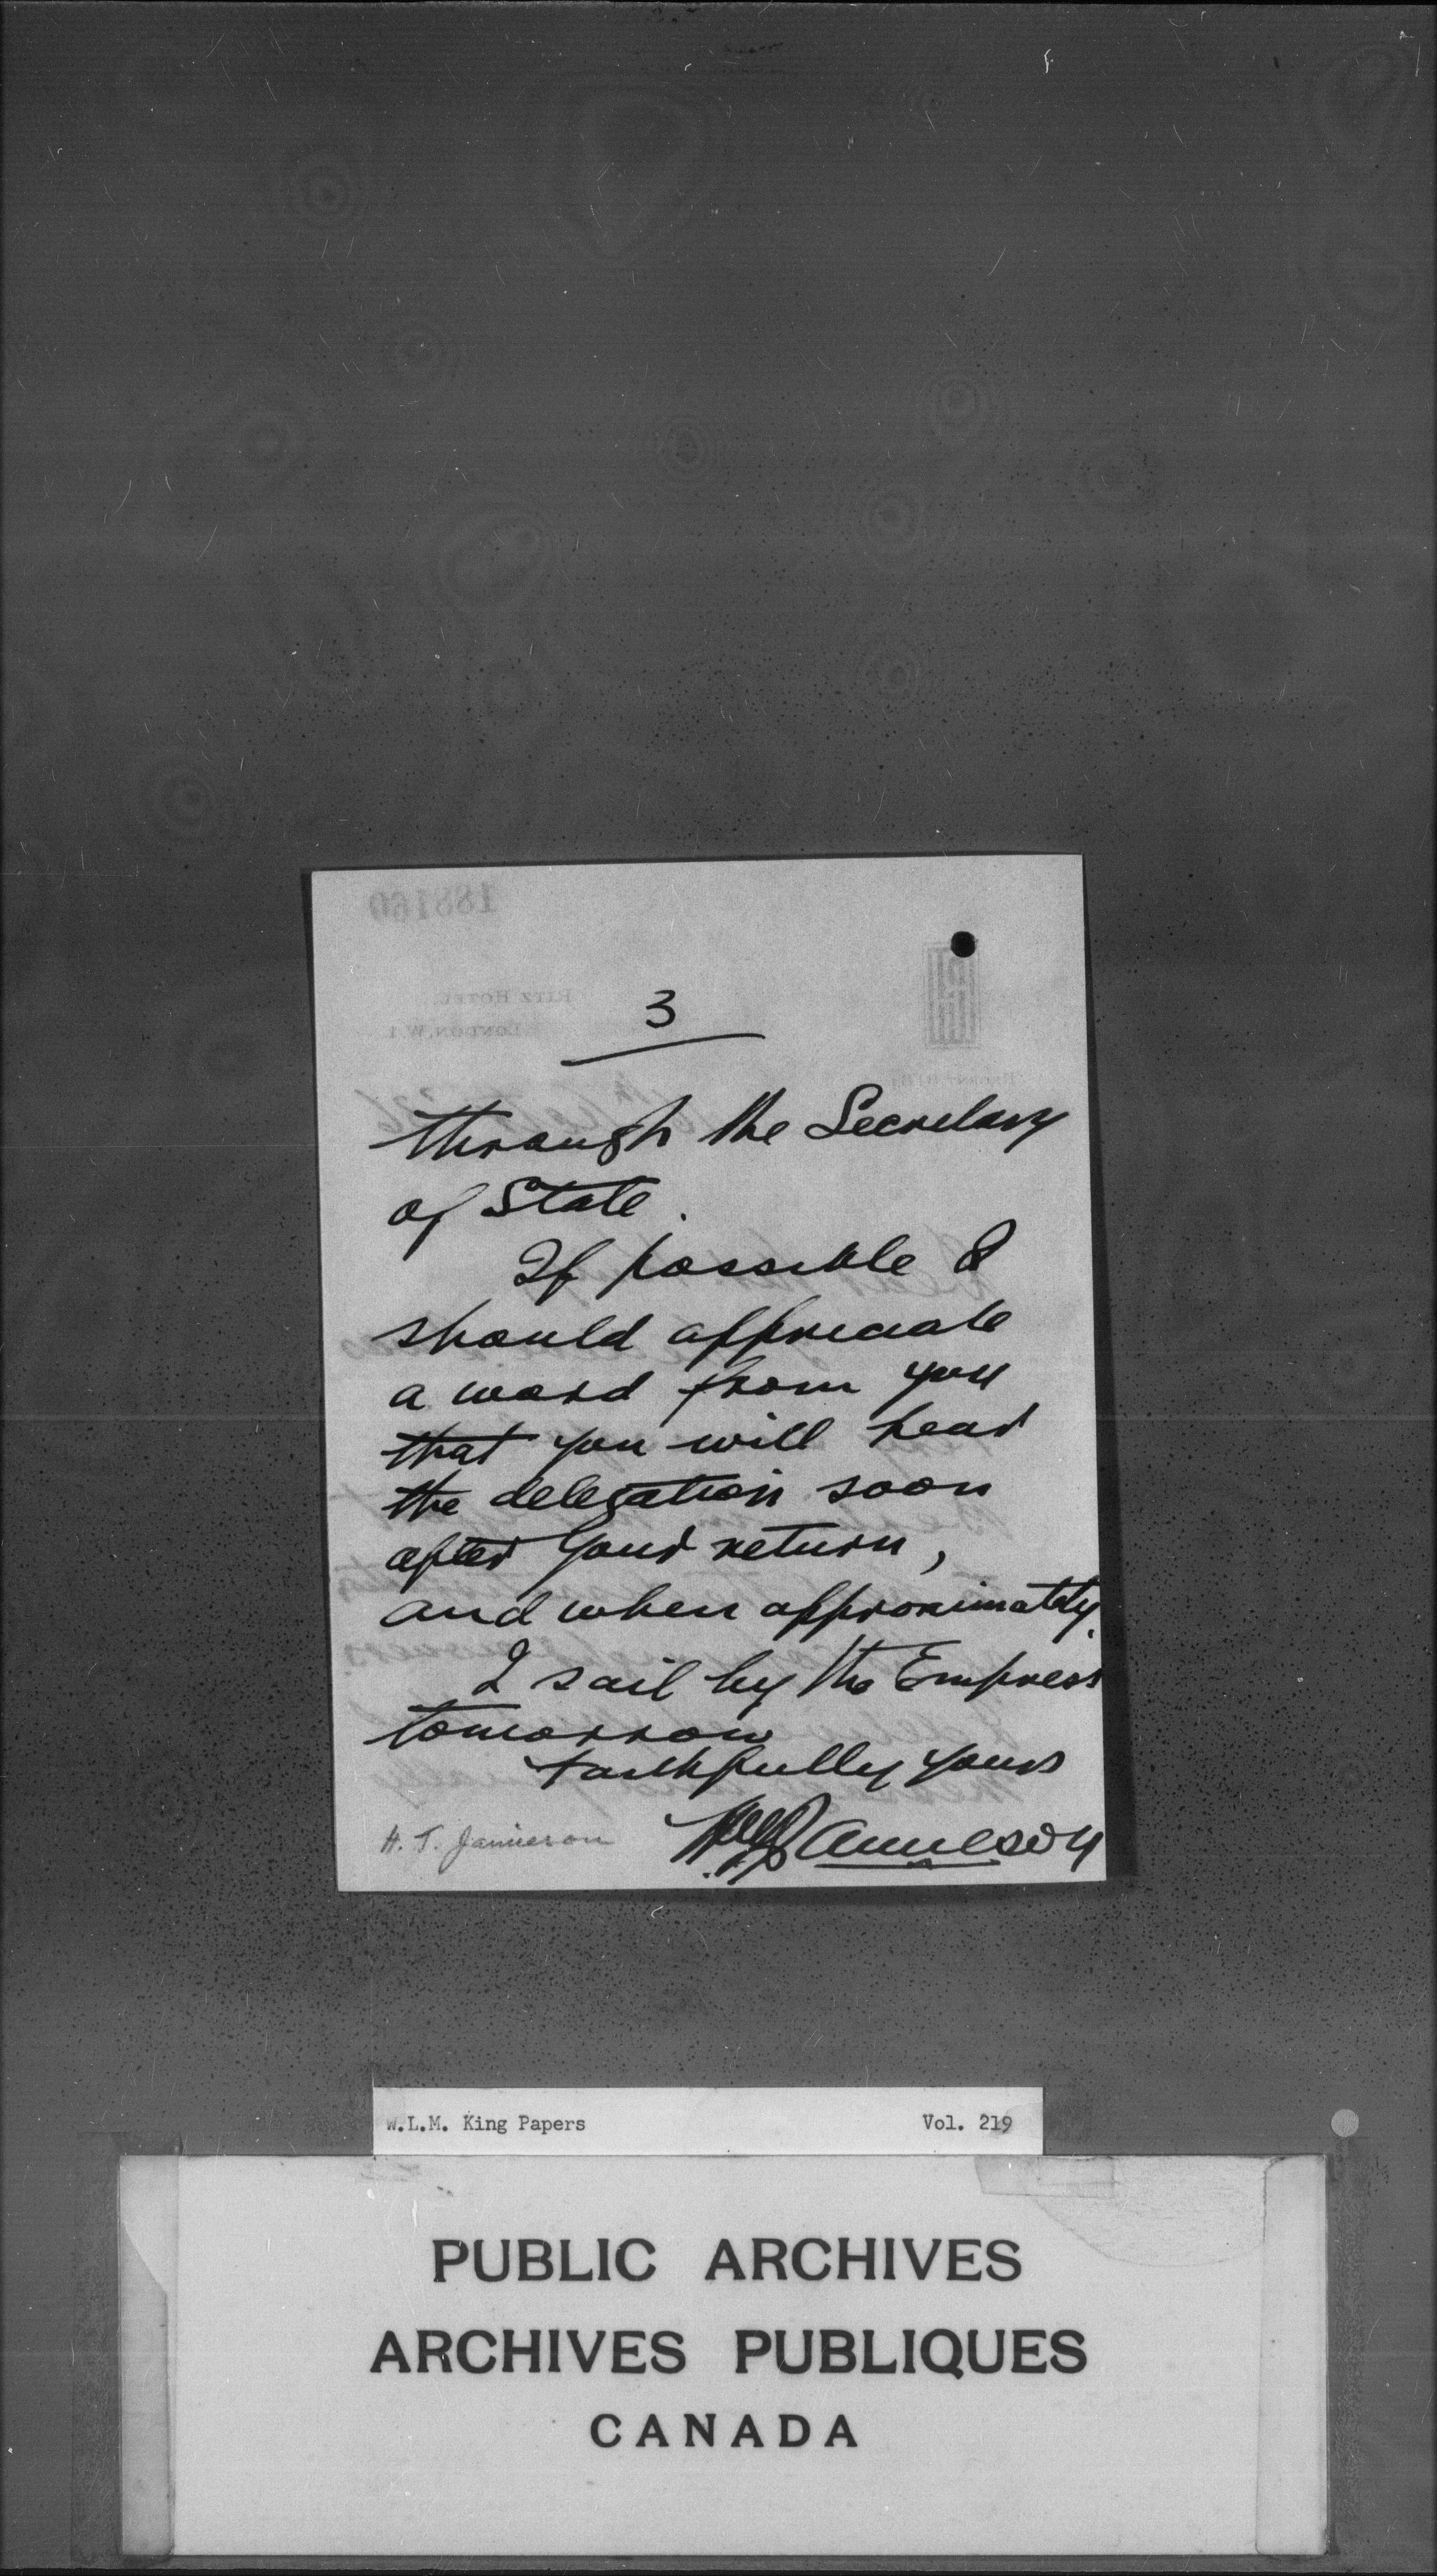 188160
RITZ HOTEL
LONDON, W.1
3
through the Secretary
of State.
If possible I
should appreciate
a word from you
that you will hear
the delegation soon
after your return,
and when approximately.
I sail by the Empress
tomorrow
Faithfully yours
Jamieson
H. T. Jamieson
W.L.M. King Papers Vol. 219
PUBLIC ARCHIVES
ARCHIVES PUBLIQUES
CANADA